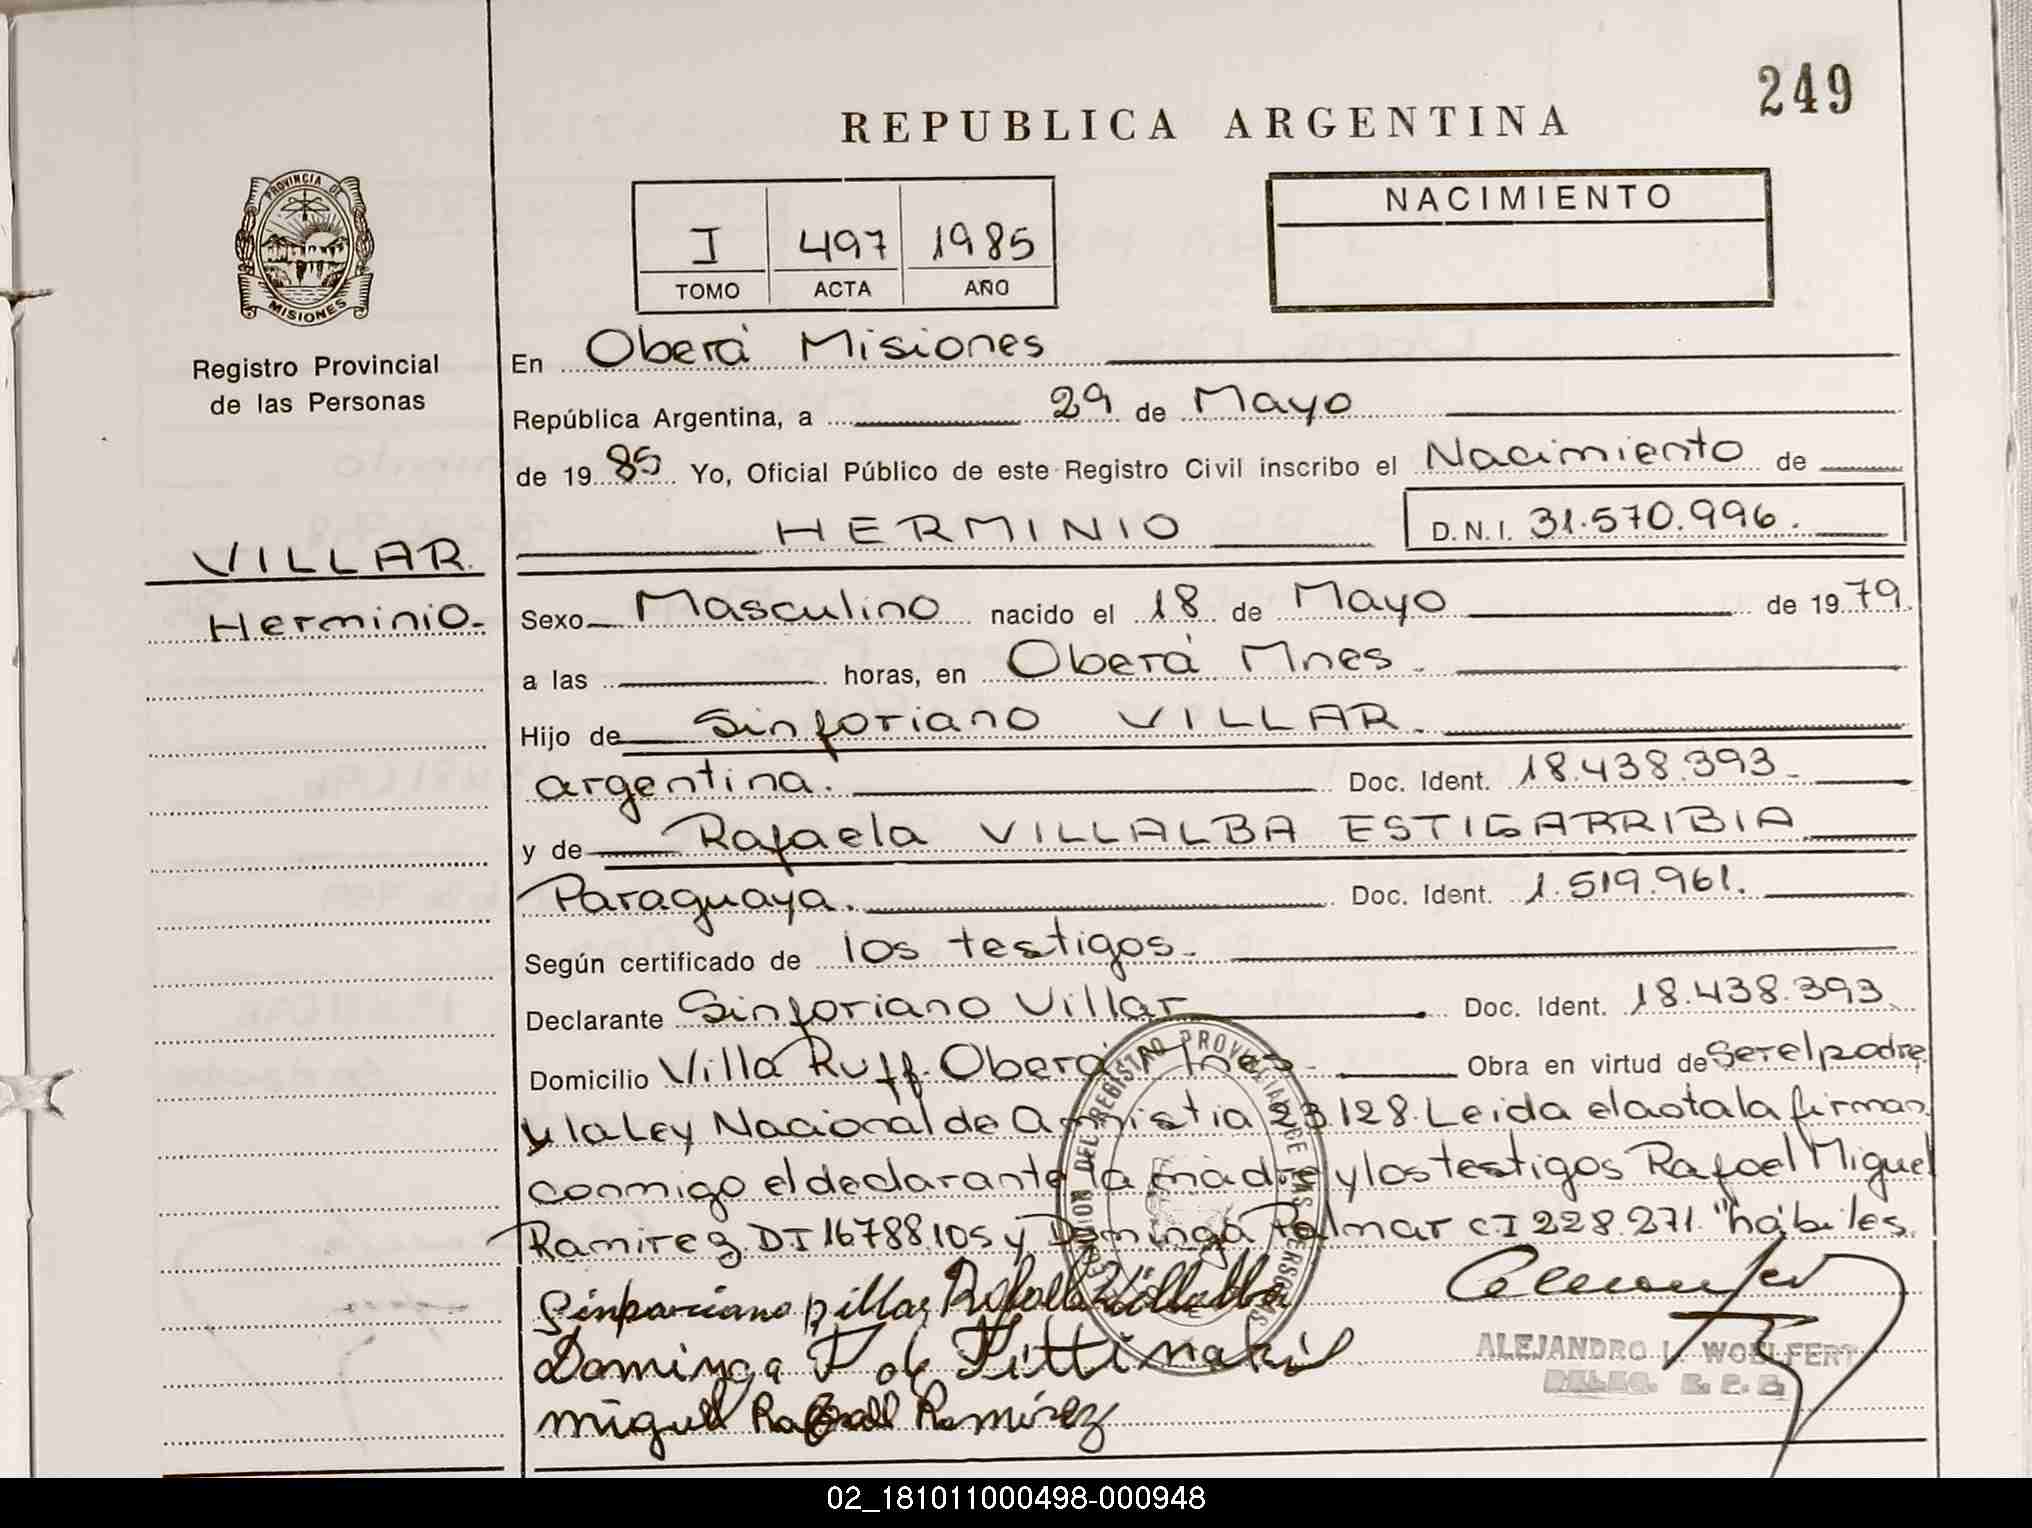 249
REPUBLICA ARGENTINA
PROVINCIA DE
MISIONES
Registro Provincial
de las Personas
I 497 1985
TOMO ACTA AÑO
NACIMIENTO
En Oberá Misiones
República Argentina, a 29 de Mayo
de 19 85 Yo, Oficial Público de este Registro Civil inscribo el Nacimiento de
HERMINIO D.N.I. 31.570.996.
VILLAR.
Herminio.
Sexo Masculino nacido el 18 de Mayo de 19 79
a las horas, en Oberá Mnes.
Hijo de Sinforiano VILLAR.
argentina. Doc. Ident. 18.438.393
y de Rafaela VILLALBA ESTIGARRIBIA
Paraguaya. Doc. Ident. 1.519.961.
Según certificado de los testigos.
Declarante Sinforiano Villar Doc. Ident. 18.438.393
Domicilio Villa Ruff. Oberá Mnes. Obra en virtud de Ser el padre
y la Ley Nacional de Amnistia 23.128. Leida el acta la firman
conmigo el declarante la madre y los testigos Rafael Miguel
Ramirez. DI 16788.105 y Dominga Palmar CI 228.271. "hábiles.
Rafaela Villalba
Dominga P de
Miguel Rafael Ramírez
ALEJANDRO I. WOELFERT
DELEG. R. P. P.
DEL REGISTRO PROVINCIAL DE LAS PERSONAS
02_181011000498-000948